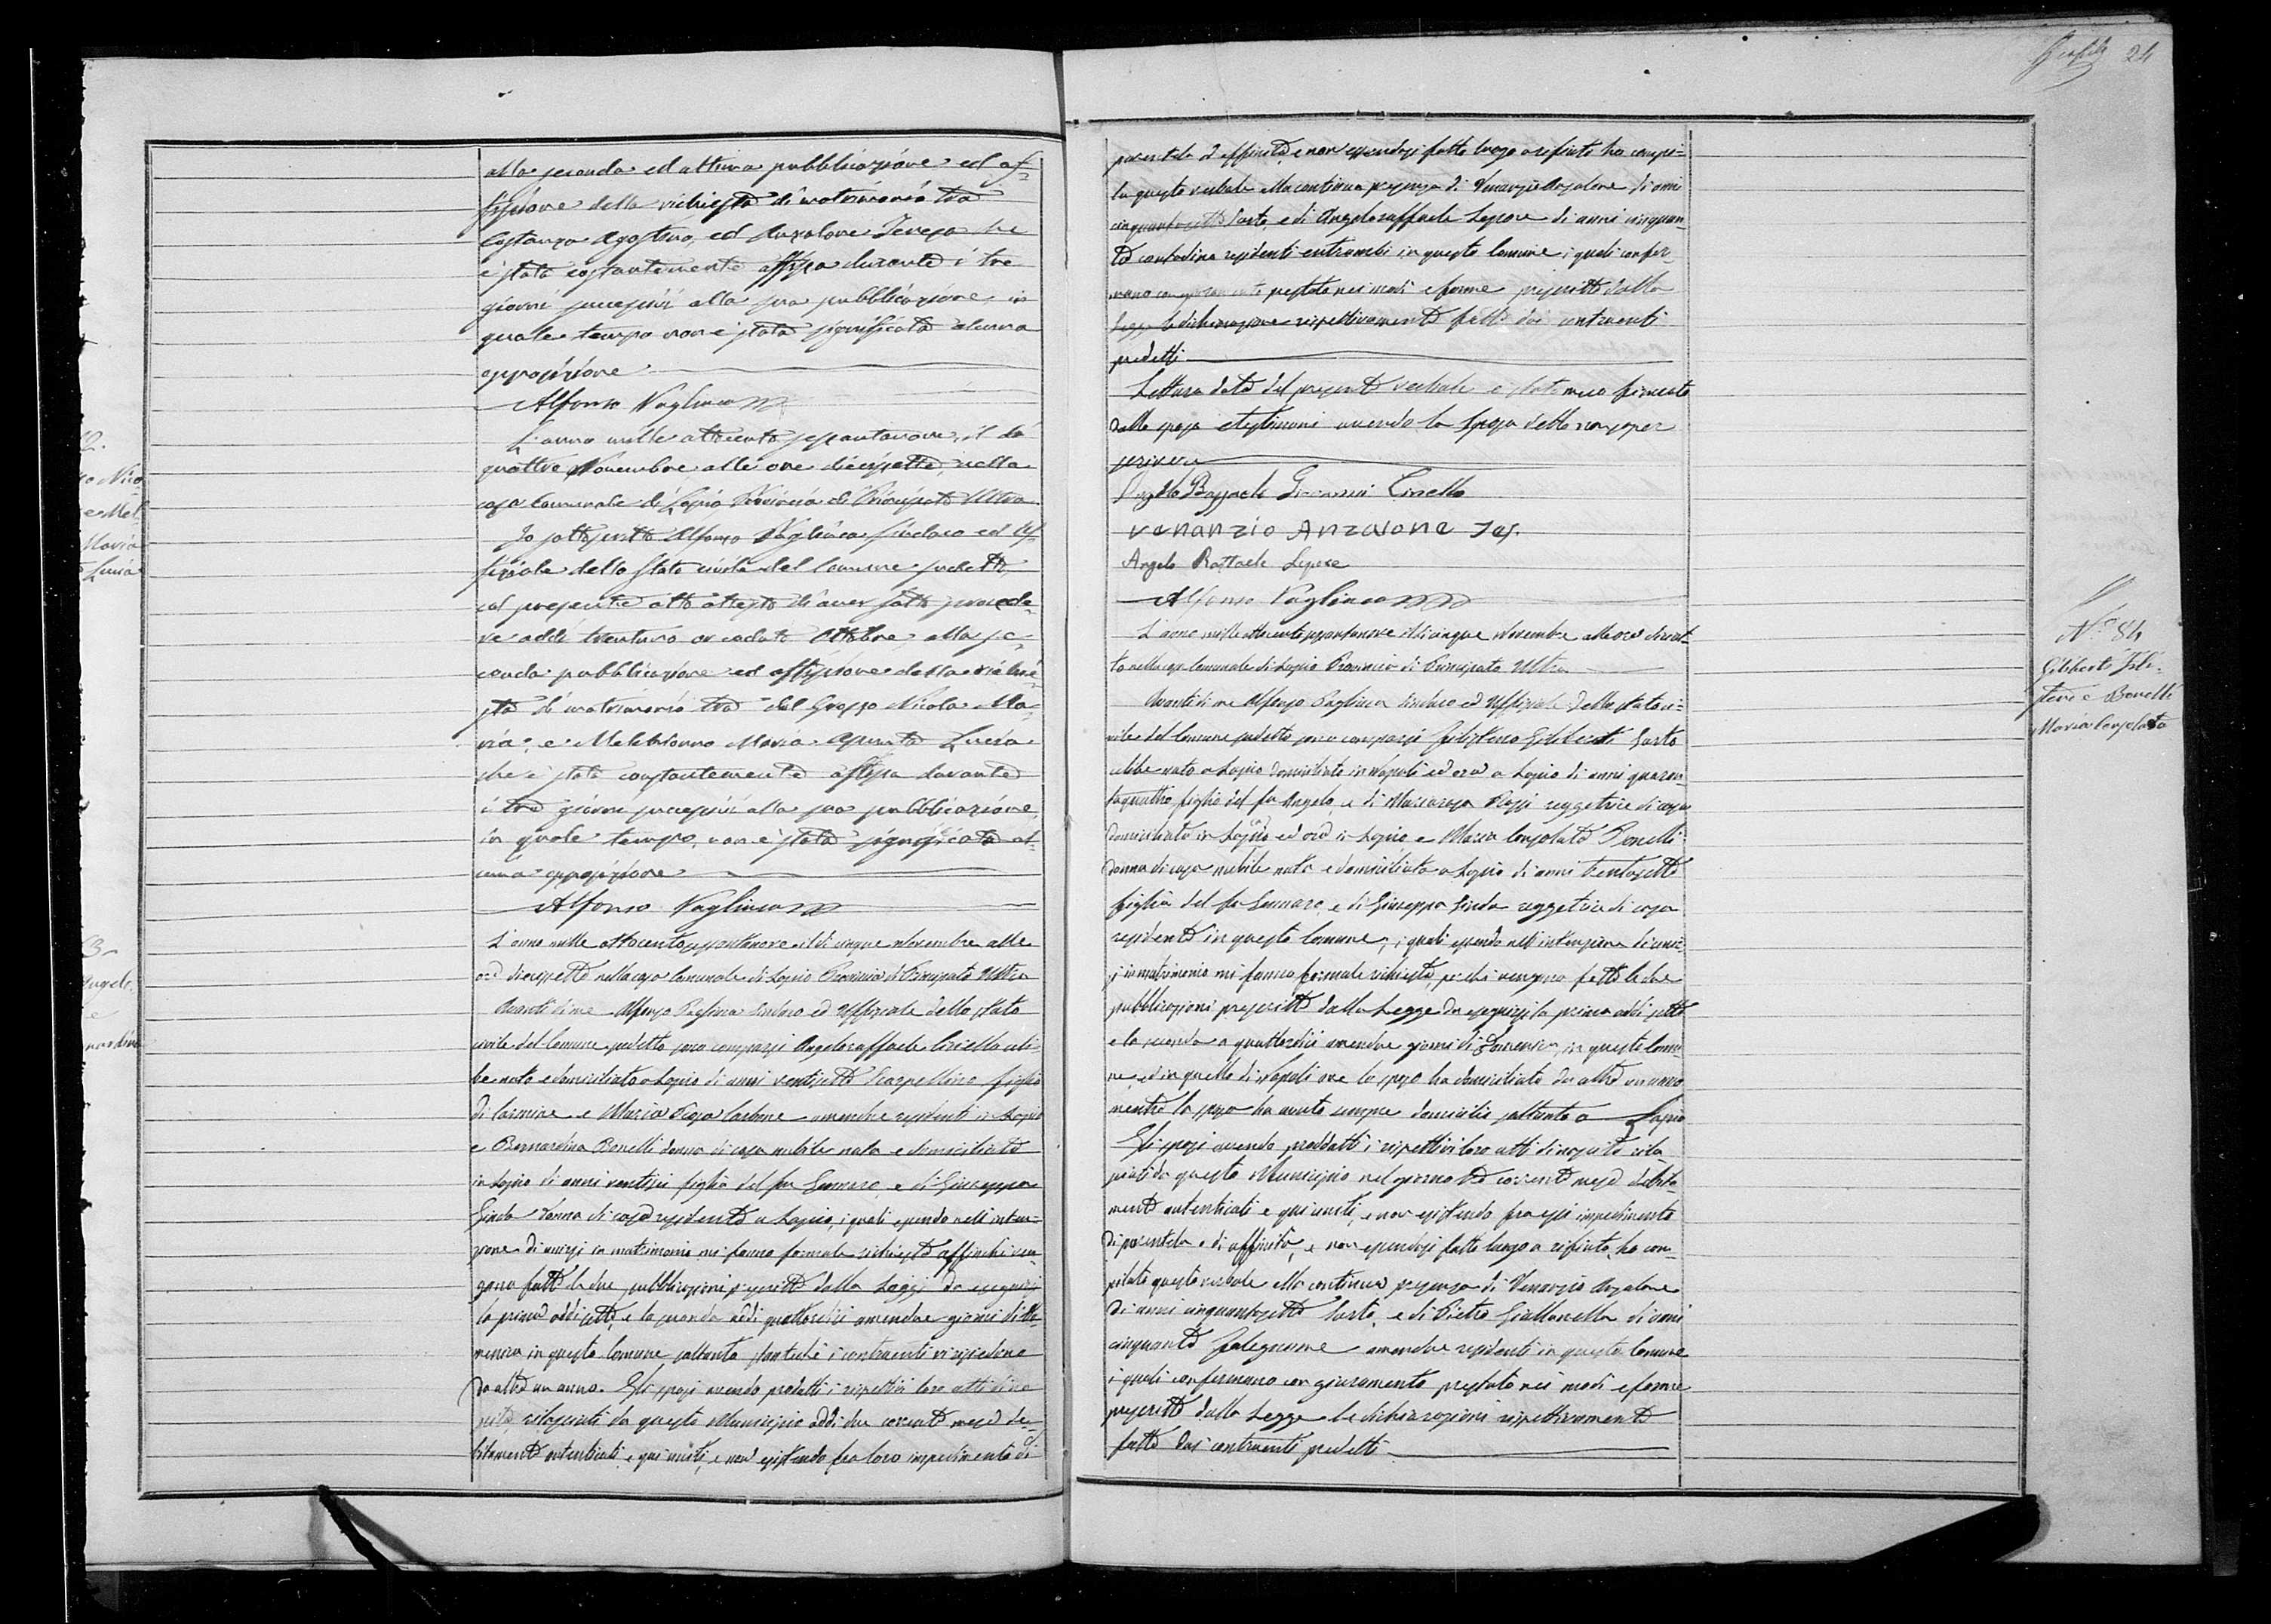 alla seconda ed ultima pubblicazione ed af-
fissione della richiesta di matrimonio tra
Costanza Agostino, ed Anzalone Teresa che
è stata costantemente affissa durante i tre
giorni successivi alla sua pubblicazione, in
quale tempo non è stata significata alcuna
opposizione
Alfonso Pagliuca
L'anno mille ottocento sessantanove, il dì
quattro Novembre alle ore diecisette, nella
casa Comunale di Lapio Provincia di Principato Ultra
Io sottoscritto Alfonso Pagliuca Sindaco ed Uf-
fiziale dello Stato civile del Comune sudetto,
col presente atto attesto di aver fatto procede-
re addì trentuno or caduto Ottobre, alla se-
conda pubblicazione ed affissione della richie-
sta di matrimonio tra del Grosso Nicola Ma-
ria, e Melchionno Maria Assunta Lucia
che è stata constantemente affissa durante
i tre giorni successivi alla sua pubblicazione,
in quale tempo, non è stata significata al-
cuna opposizione
Alfonso Pagliuca
L'anno mille ottocentosessantanove il dì cinque Novembre alle
ore diecisette nella casa Comunale di Lapio Provincia di Principato Ultra
Avanti di me Alfonso Pagliuca Sindaco ed Uffiziale dello stato
civile del Comune sudetto sono comparsi Angeloraffaele Ciriello celi-
be nato e domiciliato a Lapio di anni ventisette Scarpellino figlio
di Carmine e Maria Rosa Carbone amendue residenti in Lapio
e Bernardina Bonelli donna di casa nubile nata e domiciliata
in Lapio di anni ventisei figlia del fu Gennaro, e di Giuseppa
Sinda donna di casa residente a Lapio, i quali essendo nell'inten-
zione di unirsi in matrimonio mi fanno formale richiesta affinchè ven-
gano fatte le due pubblicazioni prescritte dalla Legge da eseguirsi
la prima addì sette, e la seconda addì quattordici amendue giorni di Do-
menica in questo Comune soltanto stantechè i contraenti vi risiedono
da oltre un anno. Gli sposi avendo prodotti i rispettivi loro atti di na-
scita rilasciati da questo Municipio addì due corrente mese de-
bitamente autenticati, e qui uniti, e non esistendo fra loro impedimento di
12.
Nico
e Mel
Maria
Lucia
Angelo
nardina
24
parentela o d'affinità, e non essendosi fatto luogo a rifiuto ho compi-
lato questo verbale alla continua presenza di Venanzio Anzalone di anni
cinquantasette Sarto, e di Angeloraffaele Lepore di anni cinquan-
ta contadino residenti entrambi in questo Comune i quali confer-
mano con giuramento prestato nei modi e forme prescritte dalla
Legge le dichiarazione rispettivamente fatte dai contraenti
predetti
Lettura data del presente verbale è stato meco firmato
dallo sposo e testimoni avendo la sposa detto non saper
scrivere
Angelo Raffaele Ciriello
venanzio Anzalone Tes.
Angelo Raffaele Lepore
Alfonso Pagliuca
L'anno mille ottocentosessantanove il dì cinque Novembre alle ore diciot-
to nella casa Comunale di Lapio Provincia di Principato Ultra
Avanti di me Alfonso Pagliuca Sindaco ed Uffiziale dello stato ci-
vile del Comune sudetto sono comparsi Filisteno Giliberti Sarto
celibe nato a Lapio domiciliato in Napoli ed ora a Lapio di anni quaran-
taquattro, figlio del fu Angelo e di Mariarosa Rossi reggetrice di casa
domiciliata in Lapio ed ora in Lapio, e Maria Consolata Bonelli
donna di casa nubile nata e domiciliata a Lapio di anni trentasette
figlia del fu Gennaro, e di Giuseppa Sinda reggetrice di casa
residente in questo Comune; i quali essendo nell'intenzione di unir-
si in matrimonio mi fanno formale richiesta, perchè vengano fatte le due
pubblicazioni prescritte dalla Legge da eseguirsi la prima addì sette
e la seconda a quattordici amendue giorni di Domenica, in questo Comu-
ne, ed in quello di Napoli ove lo sposo ha domiciliato da oltre un anno
mentre la sposa ha avuto sempre domicilio soltanto a Lapio
Gli sposi avendo prodotti i rispettivi loro atti di nascita rila-
sciati da questo Municipio nel giorno tre corrente mese debita-
mente autenticati e qui uniti, e non esistendo fra essi impedimento
di parentela o di affinità, e non essendosi fatto luogo a rifiuto, ho com-
pilato questo verbale alla continua presenza di Venanzio Anzalone
di anni cinquantasette Sarto, e di Pietro Giallonella di anni
cinquanta Falegname amendue residenti in questo Comune
i quali confermano con giuramento prestato nei modi e forme
prescritte dalla Legge le dichiarazioni rispettivamente
fatte dai contraenti predetti
N.° 84
Giliberti Fili-
steno e Bonelli
Maria Consolata